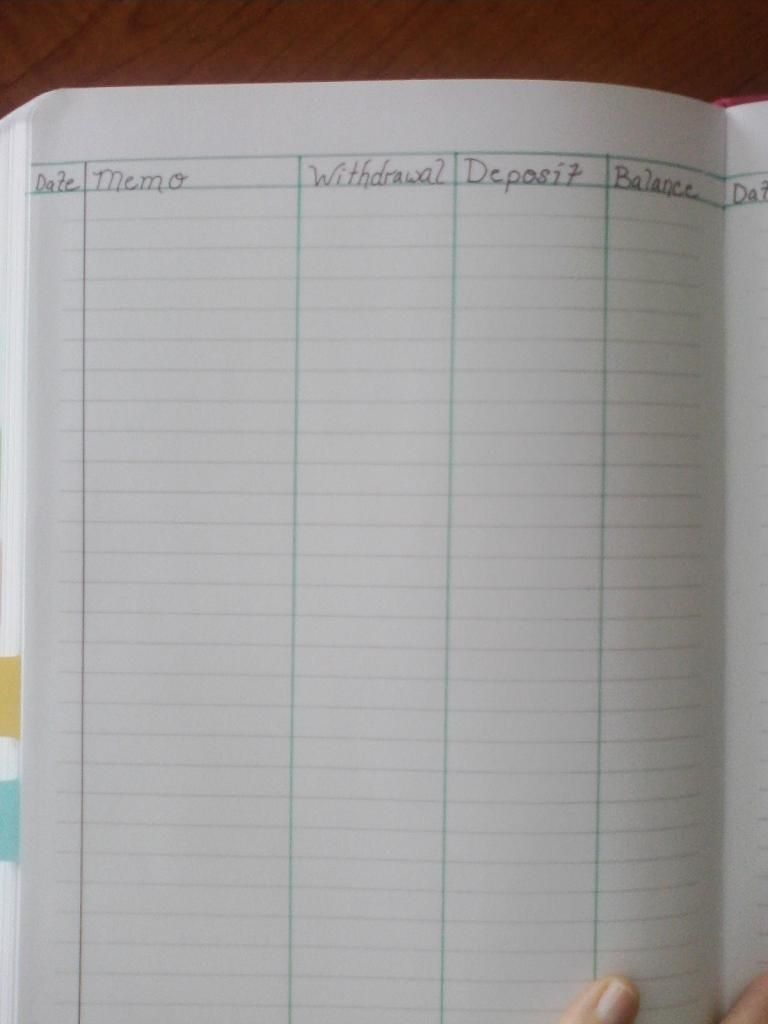 Date Memo Withdrawal Deposit Balance